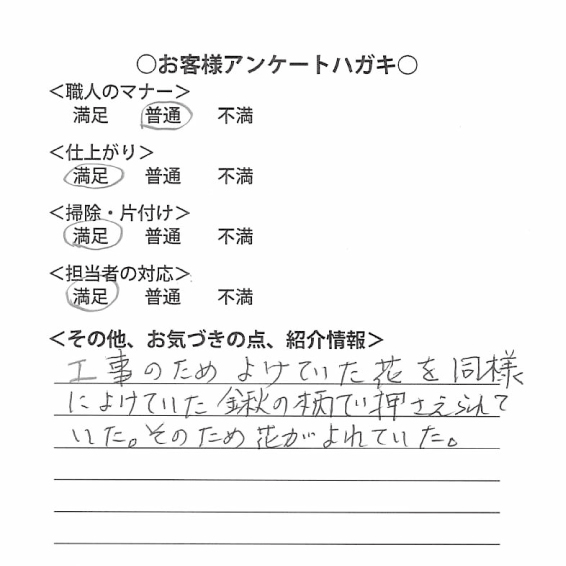 ○お客様アンケートハガキ○
<職人のマナー>
満足 普通 不満
<仕上がり>
満足 普通 不満
<掃除・片付け>
満足 普通 不満
<担当者の対応>
満足 普通 不満
<その他、お気づきの点、紹介情報>
工事のためよけていた花を同様
によけていた鍬の柄で押さえられて
いた。そのため花がよれていた。